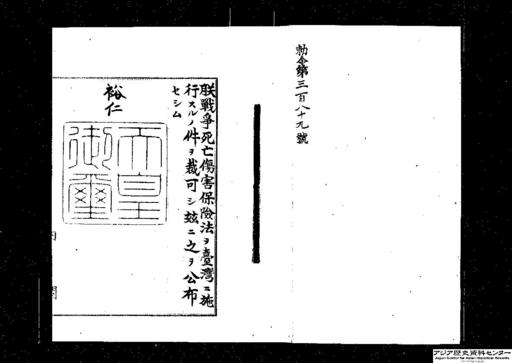 勅令第三百八十九號
朕戰爭死亡傷害保險法ヲ臺灣ニ施
行スルノ件ヲ裁可シ玆ニ之ヲ公布
セシム
裕仁
天皇
御璽
内
閣
アジア歴史資料センター
Japan Center for Asian Historical Records